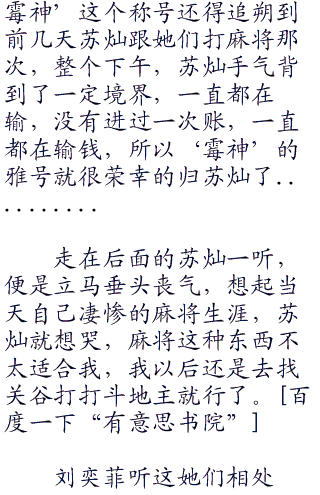 霉神’这个称号还得追朔到
前几天苏灿跟她们打麻将那
次，整个下午，苏灿手气背
到了一定境界，一直都在
输，没有进过一次账，一直
都在输钱，所以‘霉神’的
雅号就很荣幸的归苏灿了..
........
走在后面的苏灿一听，
便是立马垂头丧气，想起当
天自己凄惨的麻将生涯，苏
灿就想哭，麻将这种东西不
太适合我，我以后还是去找
关谷打打斗地主就行了。[百
度一下“有意思书院”]
刘奕菲听这她们相处